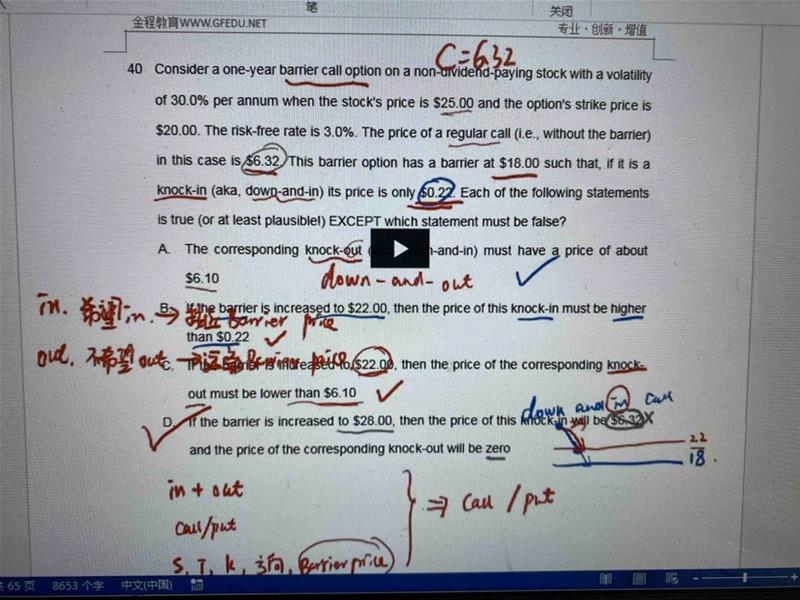 笔
关闭
金程教育WWW.GFEDU.NET
专业·创新·增值
C=6.32
40 Consider a one-year barrier call option on a non-dividend-paying stock with a volatility
of 30.0% per annum when the stock's price is $25.00 and the option's strike price is
$20.00. The risk-free rate is 3.0%. The price of a regular call (i.e., without the barrier)
in this case is $6.32 This barrier option has a barrier at $18.00 such that, if it is a
knock-in (aka, down-and-in) its price is only $0.22. Each of the following statements
is true (or at least plausible!) EXCEPT which statement must be false?
A. The corresponding knock-out -and-in) must have a price of about
$6.10
down-and-out
B. If the barrier is increased to $22.00, then the price of this knock-in must be higher
than $0.22
in. 希望in. → Barrier price
out. 不希望out → Barrier price
C. If the barrier is increased to $22.00, then the price of the corresponding knock-
out must be lower than $6.10
down and in call
D. If the barrier is increased to $28.00, then the price of this knock-in will be $6.32 X
and the price of the corresponding knock-out will be zero
22
18.
in + out
call/put
S, T, K, 方向, Barrier price
⇒ call / put
共 65 页 8653 个字 中文(中国)